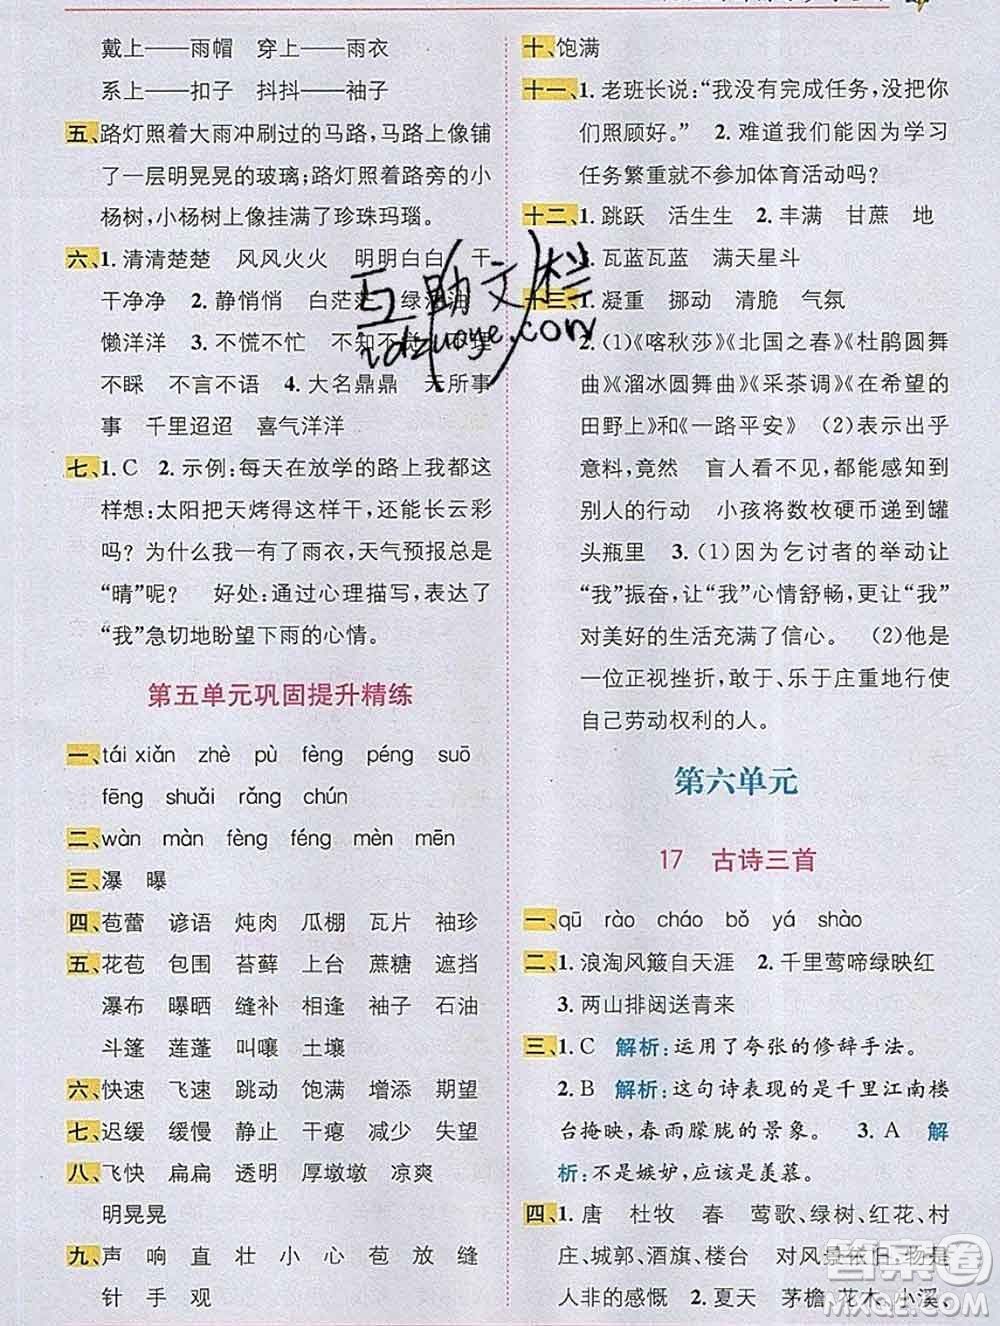 戴上——雨帽 穿上——雨衣
系上——扣子 抖抖——袖子
五、路灯照着大雨冲刷过的马路,马路上像铺
了一层明晃晃的玻璃;路灯照着路旁的小
杨树,小杨树上像挂满了珍珠玛瑙。
六、1. 清清楚楚 风风火火 明明白白 干
干净净 2. 静悄悄 白茫茫 绿油油
懒洋洋 3. 不慌不忙 不知不觉
不睬 不言不语 4. 大名鼎鼎 无所事
事 千里迢迢 喜气洋洋
七、1. C 2. 示例:每天在放学的路上我都这
样想:太阳把天烤得这样干,还能长云彩
吗? 为什么我一有了雨衣,天气预报总是
“晴”呢? 好处:通过心理描写,表达了
“我”急切地盼望下雨的心情。
第五单元巩固提升精练
一、tái xiǎn zhè pù fèng péng suō
fēng shuǎi rǎng chún
二、wàn màn fèng féng mèn mēn
三、瀑 曝
四、苞蕾 谚语 炖肉 瓜棚 瓦片 袖珍
五、花苞 包围 苔藓 上台 蔗糖 遮挡
瀑布 曝晒 缝补 相逢 袖子 石油
斗篷 莲蓬 叫嚷 土壤
六、快速 飞速 跳动 饱满 增添 期望
七、迟缓 缓慢 静止 干瘪 减少 失望
八、飞快 扁扁 透明 厚墩墩 凉爽
明晃晃
九、声 响 直 壮 小 心 苞 放 缝
针 手 观
十、饱满
十一、1. 老班长说:“我没有完成任务,没把你
们照顾好。” 2. 难道我们能因为学习
任务繁重就不参加体育活动吗?
十二、1. 跳跃 活生生 2. 丰满 甘蔗 地
3. 瓦蓝瓦蓝 满天星斗
十三、1. 凝重 挪动 清脆 气氛
2. (1)《喀秋莎》《北国之春》《杜鹃圆舞
曲》《溜冰圆舞曲》《采茶调》《在希望的
田野上》和《一路平安》 (2)表示出乎
意料,竟然 盲人看不见,都能感知到
别人的行动 小孩将数枚硬币递到罐
头瓶里 3. (1)因为乞讨者的举动让
“我”振奋,让“我”心情舒畅,更让“我”
对美好的生活充满了信心。 (2)他是
一位正视挫折,敢于、乐于庄重地行使
自己劳动权利的人。
第六单元
17 古诗三首
一、qū rào cháo bǒ yá shào
二、1. 浪淘风簸自天涯 2. 千里莺啼绿映红
3. 两山排闼送青来
三、1. C 解析:运用了夸张的修辞手法。
2. B 解析:这句诗表现的是千里江南楼
台掩映,春雨朦胧的景象。 3. A 解
析:不是嫉妒,应该是羡慕。
四、1. 唐 杜牧 春 莺歌、绿树、红花、村
庄、城郭、酒旗、楼台 对风景依旧、物是
人非的感慨 2. 夏天 茅檐、花木、小溪、
互助文栏
hdzuoye.com
答案圈
MXQE.COM